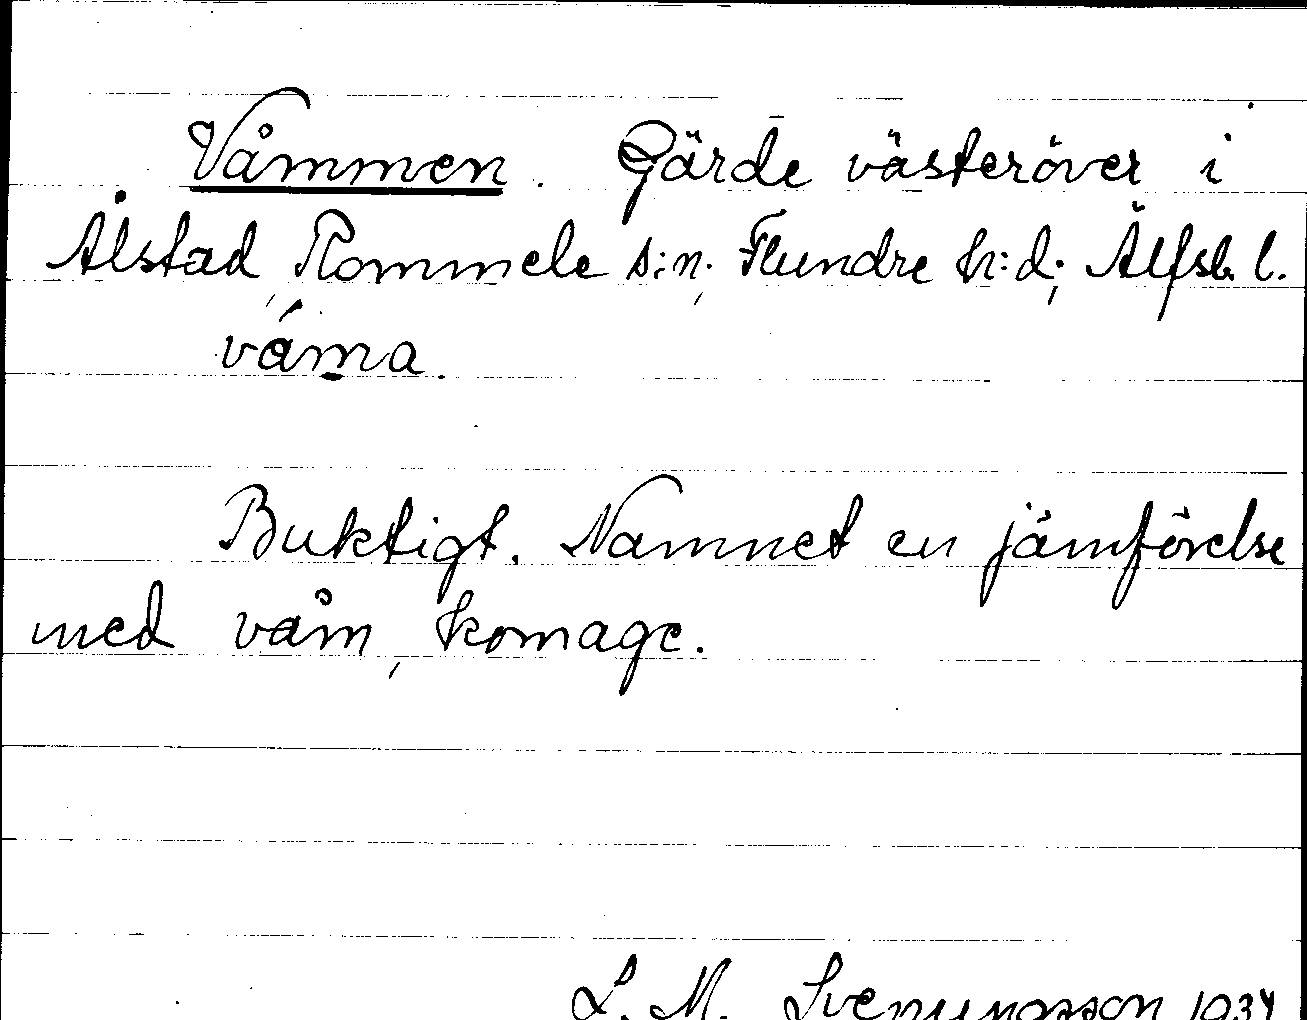 Våmmen. Gärde västeröver i
Ålstad, Rommele s:n, Flundre h:d, Älfsb. l.
våma.
Buktigt. Namnet en jämförelse
med våm, komage.
L. M. Svenungsson 1934